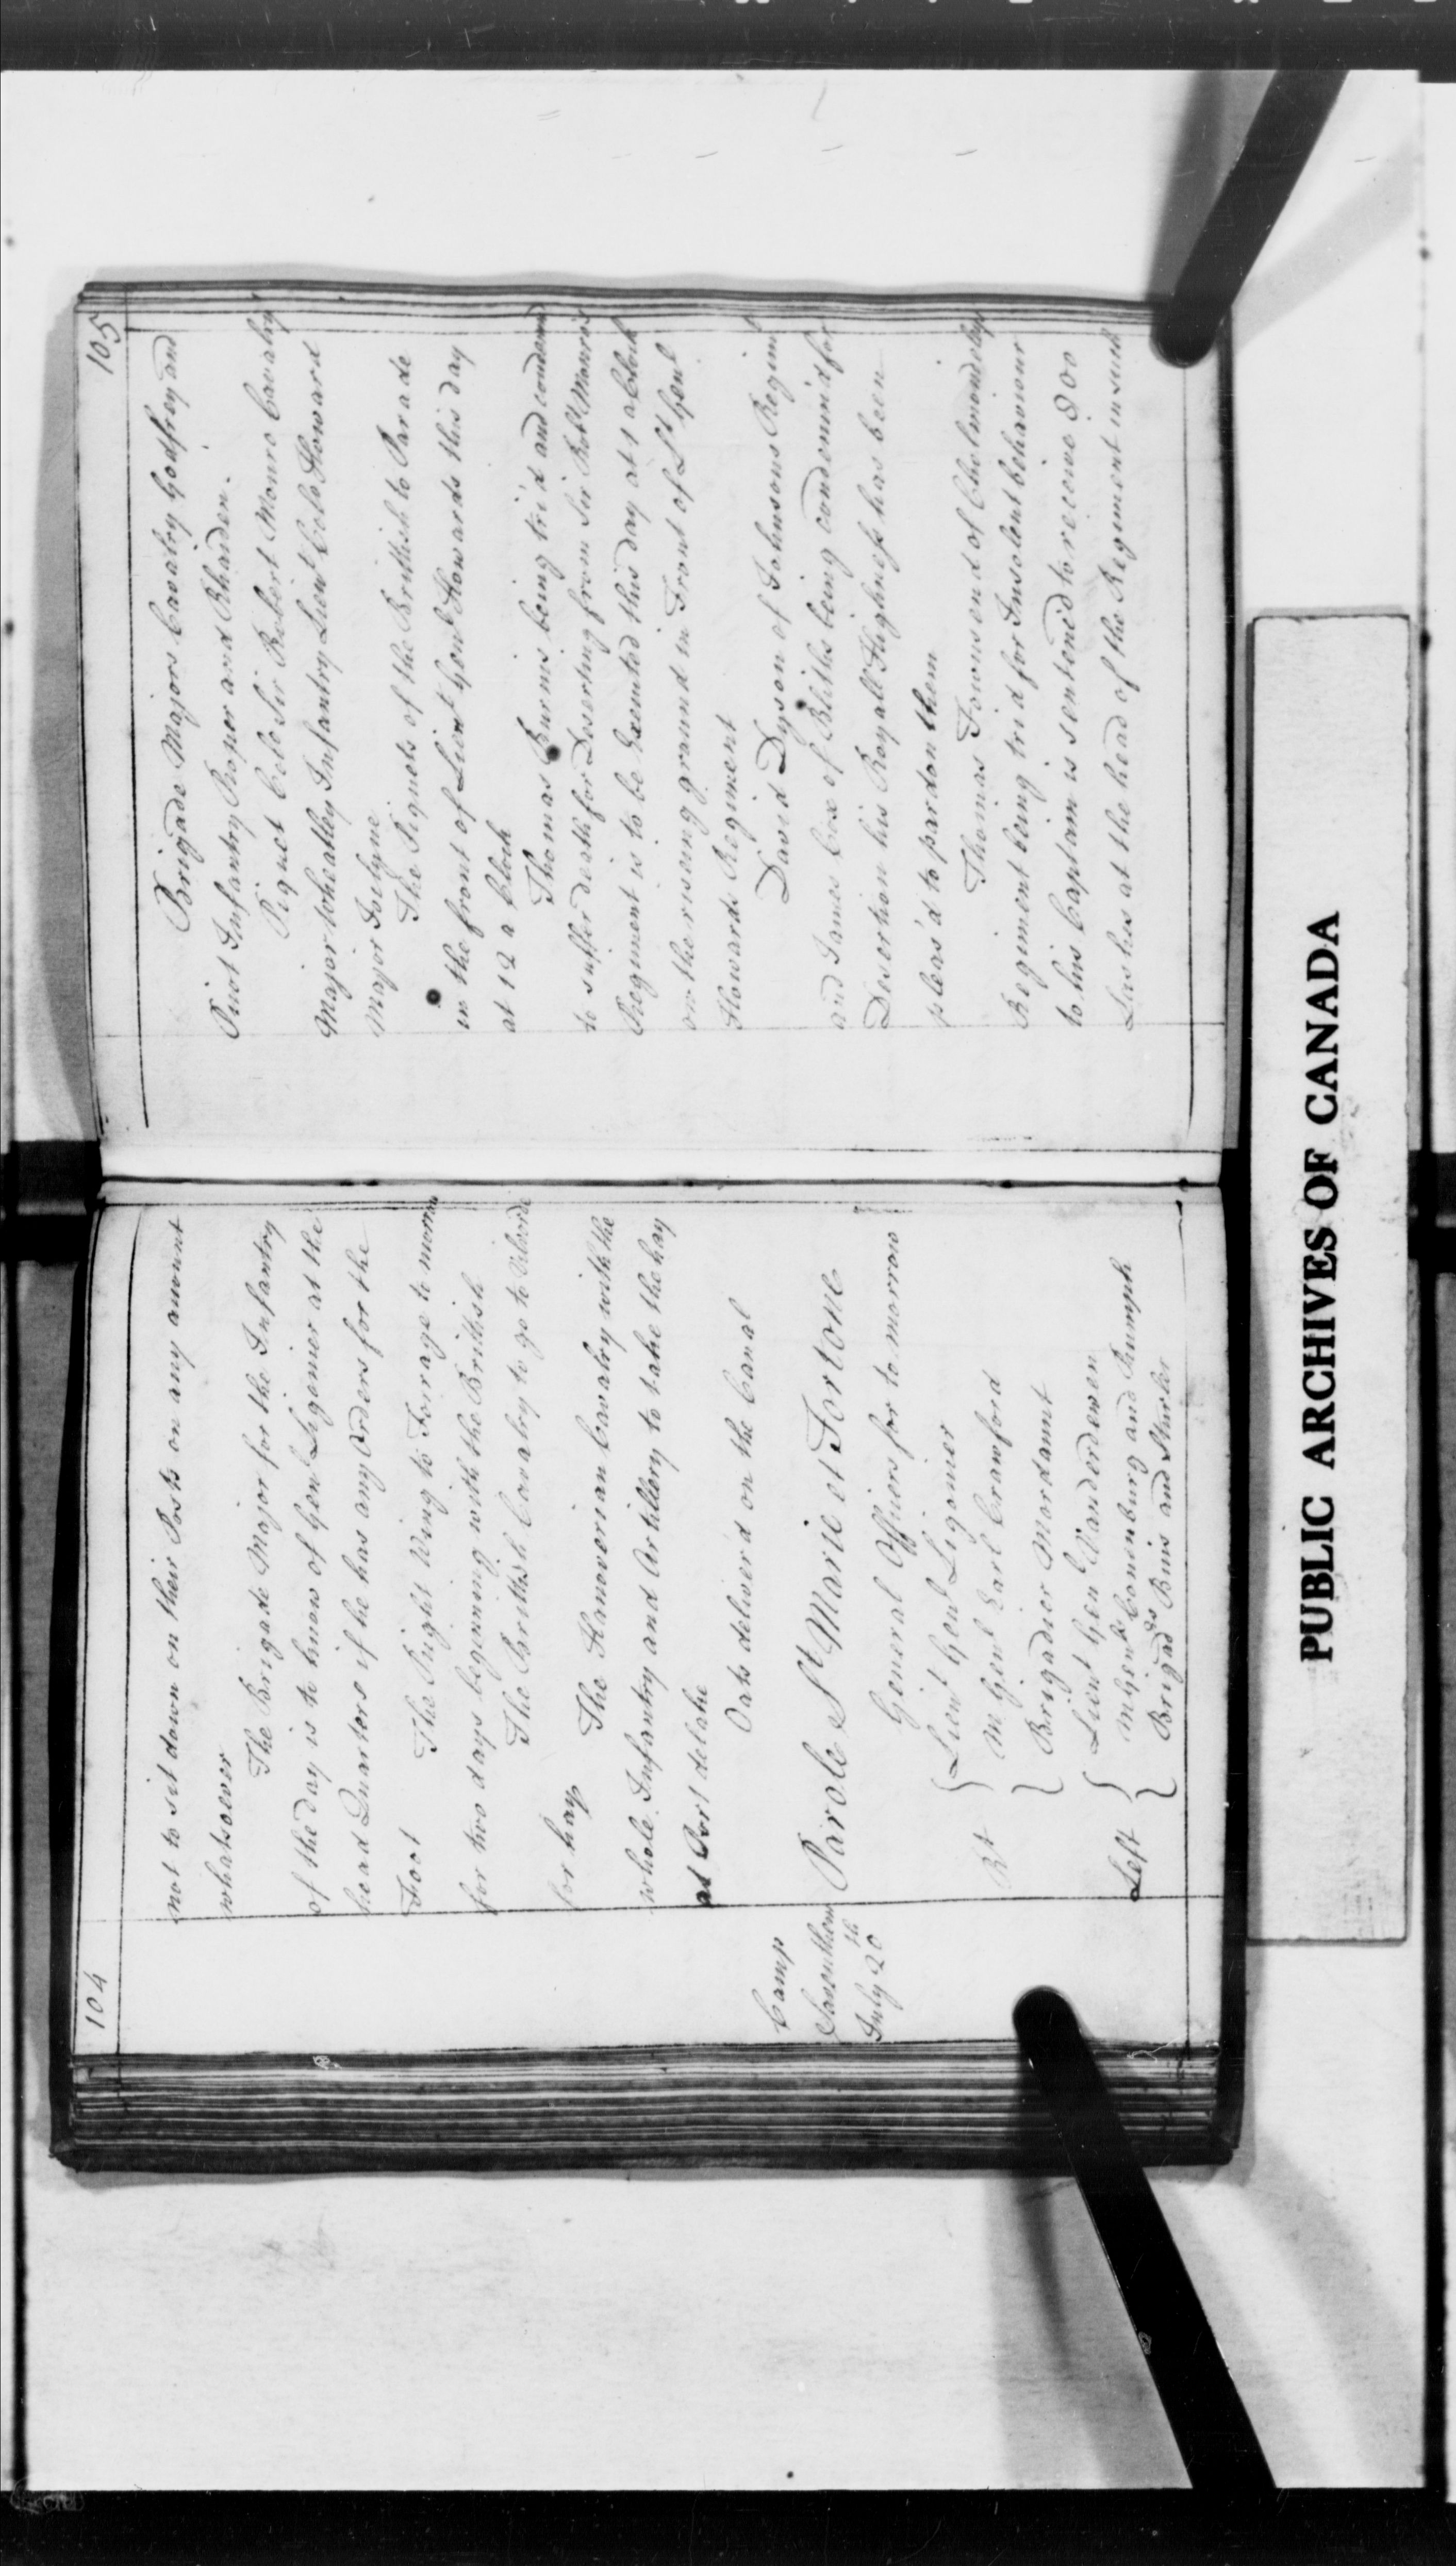 104
not to sit down on their Posts on any account
whatsoever
The Brigade Major for the Infantry
of the day is to know of Genl Ligonier at the
head Quarters if he has any Orders for the
Foot
The Right Wing to Forrage to morrow
for two days begening with the Brittish
The Brittish Cavalry to go to Vilvorde
for hay
The Hanoverian Cavalry with the
whole Infantry and Artillery to take the hay
at Port delake
Oats deliver'd on the Canal
Camp
July 20th
Parole St Marie et Tortone
General Officers for to morrow
Rt
Lieut Genl Ligonier
M Genl Earl Crawford
Brigadier Mordaunt
Left
Lieut Genl Vanderdewen
MGenls Conenburg and Rumph
Brigads Buis and Sturler
105
Brigade Majors Cavalry Godfrey and
Pirot Infantry Roper and Rhaiden.
Piquet Colo Sir Robert Monro Cavalry
Major Wheatley Infantry Lieut Colo Howard
Major Joslyne
The Piquets of the Brittish to Parade
in the front of Lieut Genl Howards this day
at 12 a Clock
Thomas Burns being try'd and condemnd
to suffer death for Deserting from Sir Robt Monro's
Regiment is to be Executed this day at 1 a Clock
on the riseing ground in Front of Lt Genl
Howards Regiment
David Dyson of Johnsons Regiment
and James Cox of Bliths being condemn'd for
Desertion his Royall Highness has been
pleas'd to pardon them
Thomas Townsend of Cholmondelys
Regiment being try'd for Insolent behaviour
to his Captain is sentenc'd to receive 800
Lashes at the head of the Regiment in such
PUBLIC ARCHIVES OF CANADA